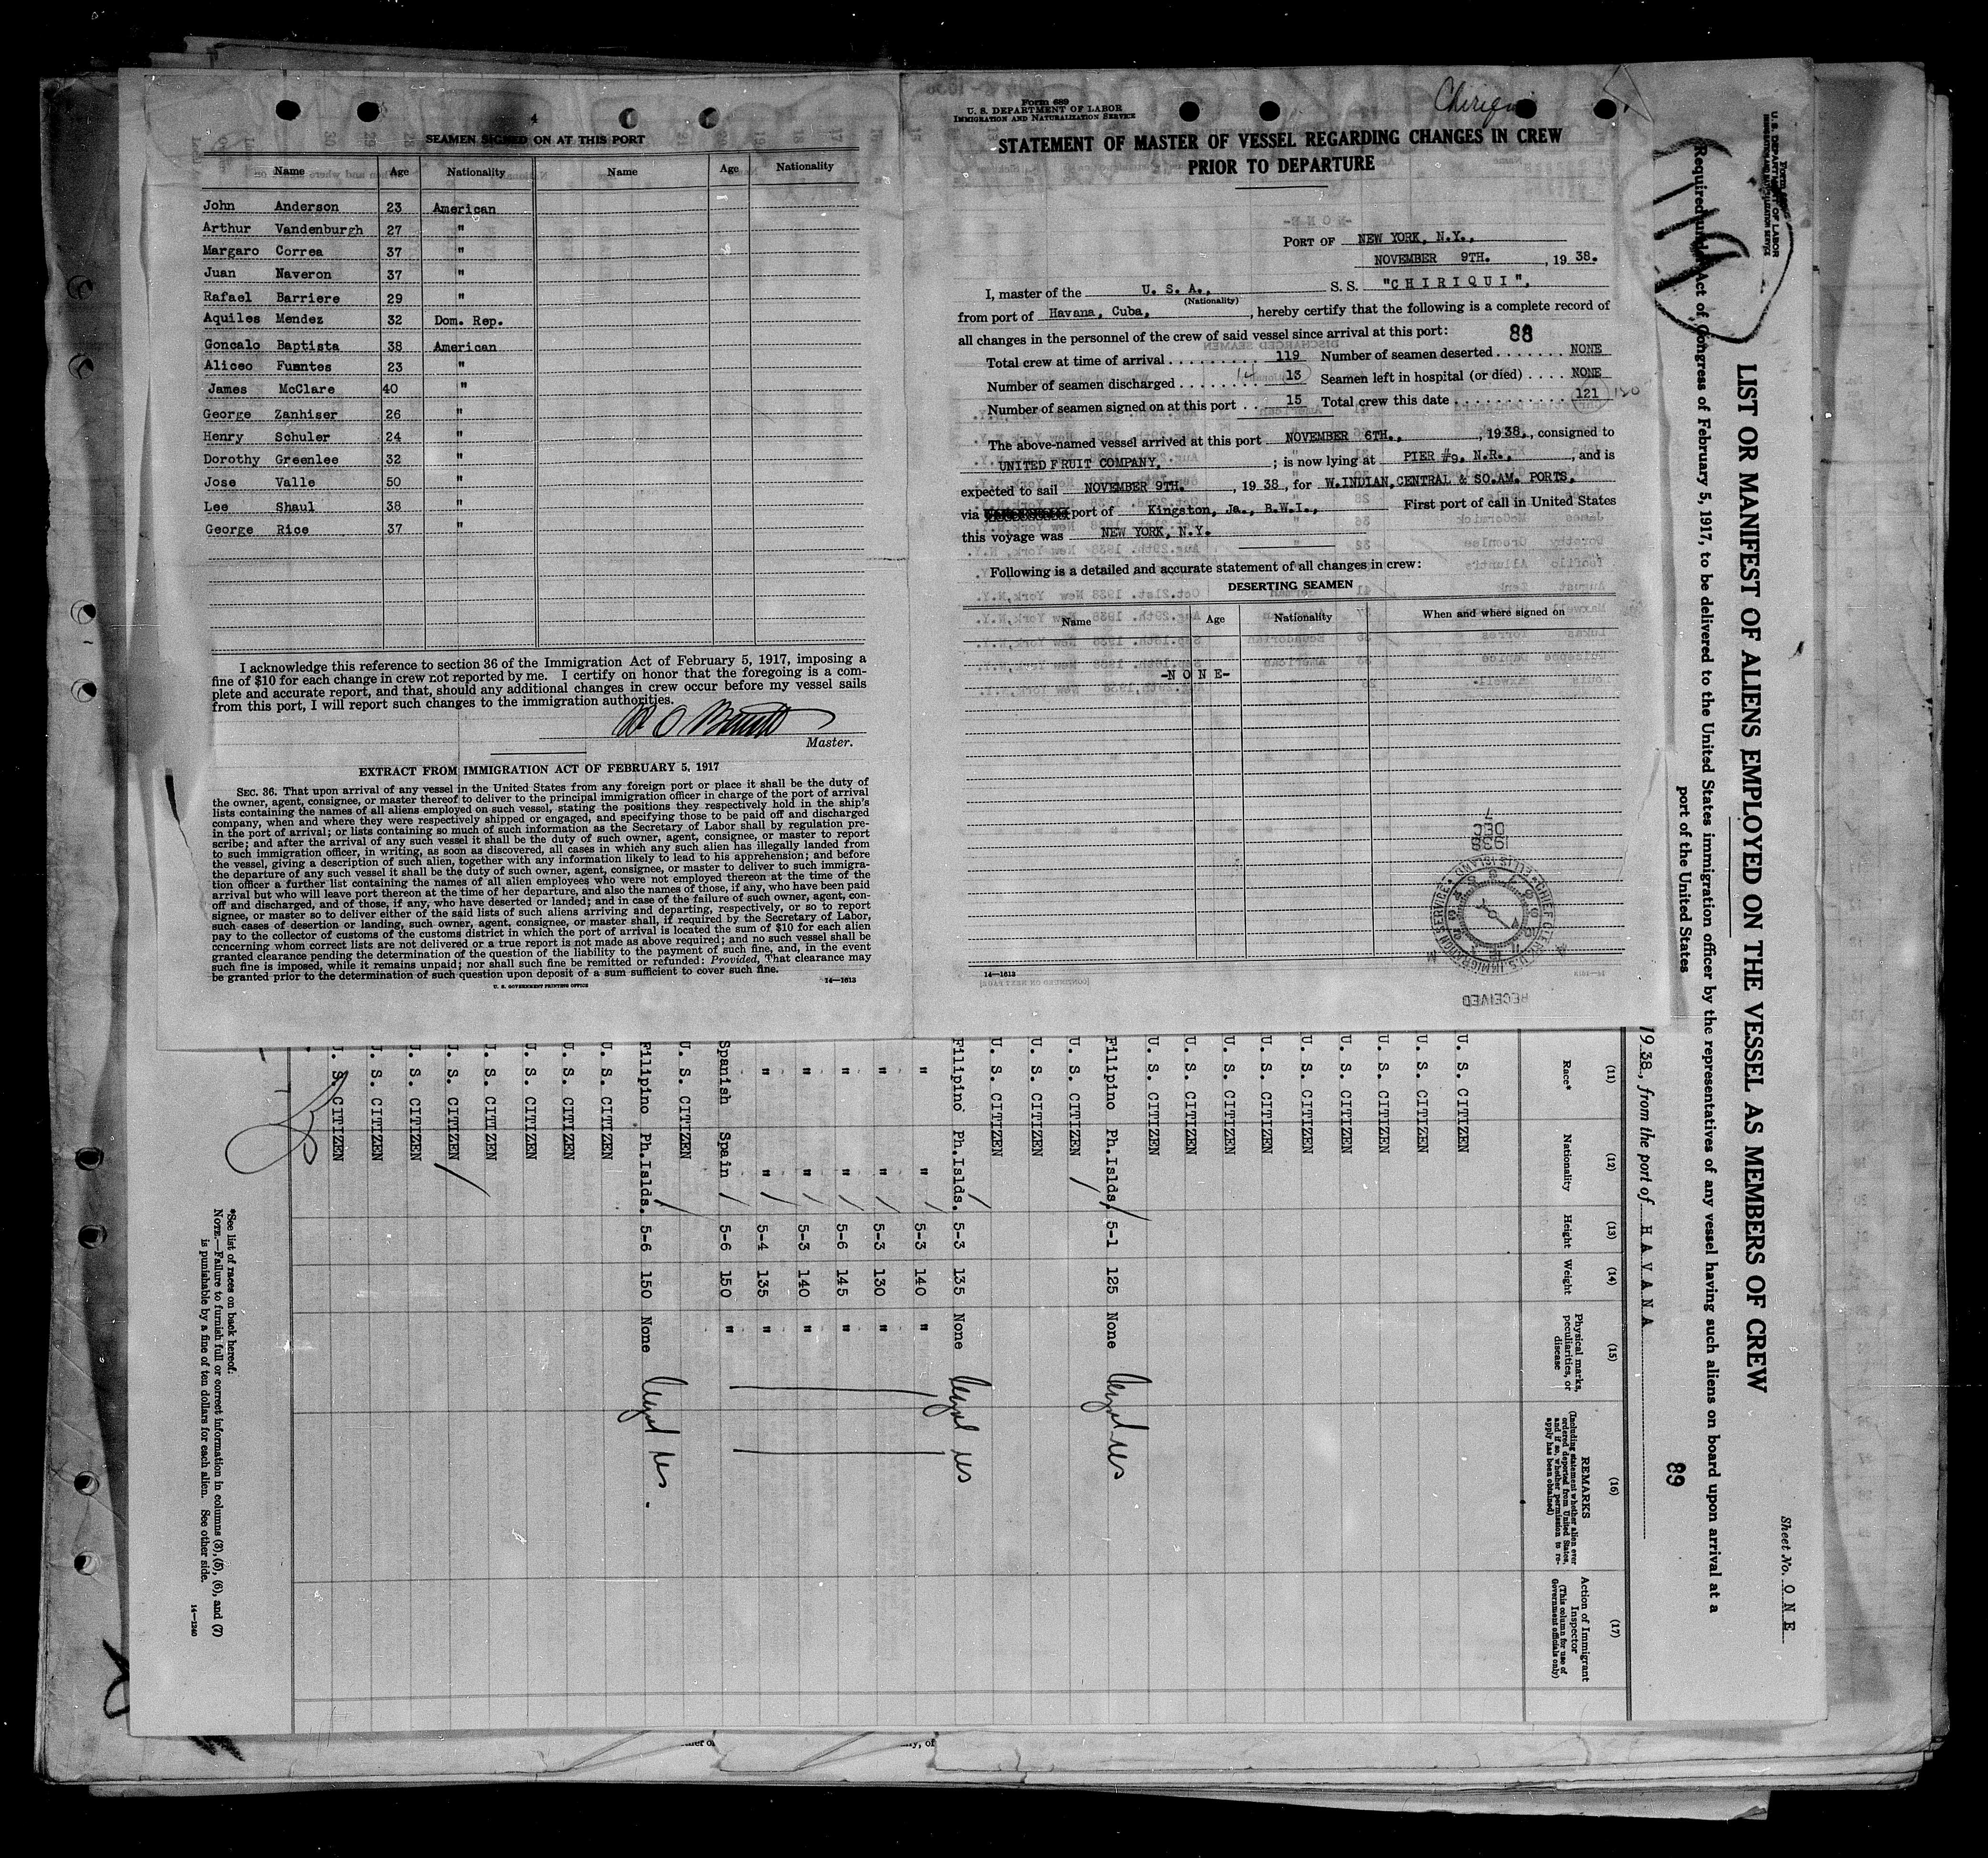 4
SEAMEN SIGNED ON AT THIS PORT
Name Age Nationality Name Age Nationality
John Anderson 23 American
Arthur Vandenburgh 27 "
Margaro Correa 37 "
Juan Naveron 37 "
Rafael Barriere 29 "
Aquiles Mendez 32 Dom. Rep.
Goncalo Baptista 38 American
Aliceo Fuentes 23 "
James McClare 40 "
George Zanhiser 26 "
Henry Schuler 24 "
Dorothy Greenlee 32 "
Jose Valle 50 "
Lee Shaul 38 "
George Rice 37 "
I acknowledge this reference to section 36 of the Immigration Act of February 5, 1917, imposing a
fine of $10 for each change in crew not reported by me. I certify on honor that the foregoing is a com-
plete and accurate report, and that, should any additional changes in crew occur before my vessel sails
from this port, I will report such changes to the immigration authorities.
Master.
EXTRACT FROM IMMIGRATION ACT OF FEBRUARY 5, 1917
SEC. 36. That upon arrival of any vessel in the United States from any foreign port or place it shall be the duty of
the owner, agent, consignee, or master thereof to deliver to the principal immigration officer in charge of the port of arrival
lists containing the names of all aliens employed on such vessel, stating the positions they respectively hold in the ship's
company, when and where they were respectively shipped or engaged, and specifying those to be paid off and discharged
in the port of arrival; or lists containing so much of such information as the Secretary of Labor shall by regulation pre-
scribe; and after the arrival of any such vessel it shall be the duty of such owner, agent, consignee, or master to report
to such immigration officer, in writing, as soon as discovered, all cases in which any such alien has illegally landed from
the vessel, giving a description of such alien, together with any information likely to lead to his apprehension; and before
the departure of any such vessel it shall be the duty of such owner, agent, consignee, or master to deliver to such immigra-
tion officer a further list containing the names of all alien employees who were not employed thereon at the time of the
arrival but who will leave port thereon at the time of her departure, and also the names of those, if any, who have been paid
off and discharged, and of those, if any, who have deserted or landed; and in case of the failure of such owner, agent, con-
signee, or master so to deliver either of the said lists of such aliens arriving and departing, respectively, or so to report
such cases of desertion or landing, such owner, agent, consignee, or master shall, if required by the Secretary of Labor,
pay to the collector of customs of the customs district in which the port of arrival is located the sum of $10 for each alien
concerning whom correct lists are not delivered or a true report is not made as above required; and no such vessel shall be
granted clearance pending the determination of the question of the liability to the payment of such fine, and, in the event
such fine is imposed, while it remains unpaid; nor shall such fine be remitted or refunded: Provided, That clearance may
be granted prior to the determination of such question upon deposit of a sum sufficient to cover such fine.
U. S. GOVERNMENT PRINTING OFFICE 14—1613
Chiriqui
Form 689
U. S. DEPARTMENT OF LABOR
IMMIGRATION AND NATURALIZATION SERVICE
STATEMENT OF MASTER OF VESSEL REGARDING CHANGES IN CREW
PRIOR TO DEPARTURE
PORT OF NEW YORK, N.Y.,
NOVEMBER 9TH. , 1938.
I, master of the U. S. A., S.S. "CHIRIQUI",
(Nationality)
from port of Havana, Cuba, , hereby certify that the following is a complete record of
all changes in the personnel of the crew of said vessel since arrival at this port: 88
Total crew at time of arrival 119 Number of seamen deserted NONE
Number of seamen discharged 14 13 Seamen left in hospital (or died) NONE
Number of seamen signed on at this port 15 Total crew this date 121 120
The above-named vessel arrived at this port NOVEMBER 6TH., , 1938., consigned to
UNITED FRUIT COMPANY, ; is now lying at PIER #9. N.R., , and is
expected to sail NOVEMBER 9TH. , 1938, for W.INDIAN,CENTRAL & SO.AM. PORTS,
via port of Kingston, Ja., B.W.I., First port of call in United States
this voyage was NEW YORK, N.Y.
Following is a detailed and accurate statement of all changes in crew:
DESERTING SEAMEN
Name Age Nationality When and where signed on
-N O N E-
14—1613
1938
DEC
7
CHIEF CLERK U.S. IMMIGRATION SERVICE ELLIS ISLAND
RECEIVED
U. S. DEPARTMENT OF LABOR
Sheet No. O N E
LIST OR MANIFEST OF ALIENS EMPLOYED ON THE VESSEL AS MEMBERS OF CREW
Required under Act of Congress of February 5, 1917, to be delivered to the United States immigration officer by the representatives of any vessel having such aliens on board upon arrival at a
port of the United States
89
1938, from the port of H A V A N A
(11) (12) (13) (14) (15) (16) (17)
Race* Nationality Height Weight Physical marks, peculiarities, or disease REMARKS (Including statement whether alien ever ordered deported from United States, and if so, whether permission to re-apply has been obtained) Action of Immigrant Inspector (This column for use of Government officials only)
U. S. CITIZEN
U. S. CITIZEN
U. S. CITIZEN
U. S. CITIZEN
U. S. CITIZEN
U. S. CITIZEN
U. S. CITIZEN
U. S. CITIZEN
U. S. CITIZEN
Filipino Ph.Islds. 5-1 125 None
U. S. CITIZEN
U. S. CITIZEN
U. S. CITIZEN
Filipino Ph.Islds. 5-3 135 None
" " 5-3 140 "
" " 5-3 130 "
" " 5-6 145 "
" " 5-3 140 "
" " 5-4 135 "
Spanish Spain 5-6 150 "
U. S. CITIZEN
Filipino Ph.Islds. 5-6 150 None
U. S. CITIZEN
U. S. CITIZEN
U. S. CITIZEN
U. S. CITIZEN
U. S. CITIZEN
U. S. CITIZEN
U. S. CITIZEN
U. S. CITIZEN
*See list of races on back hereof.
NOTE.—Failure to furnish full or correct information in columns (3), (5), (6), and (7)
is punishable by a fine of ten dollars for each alien. See other side.
14—1240